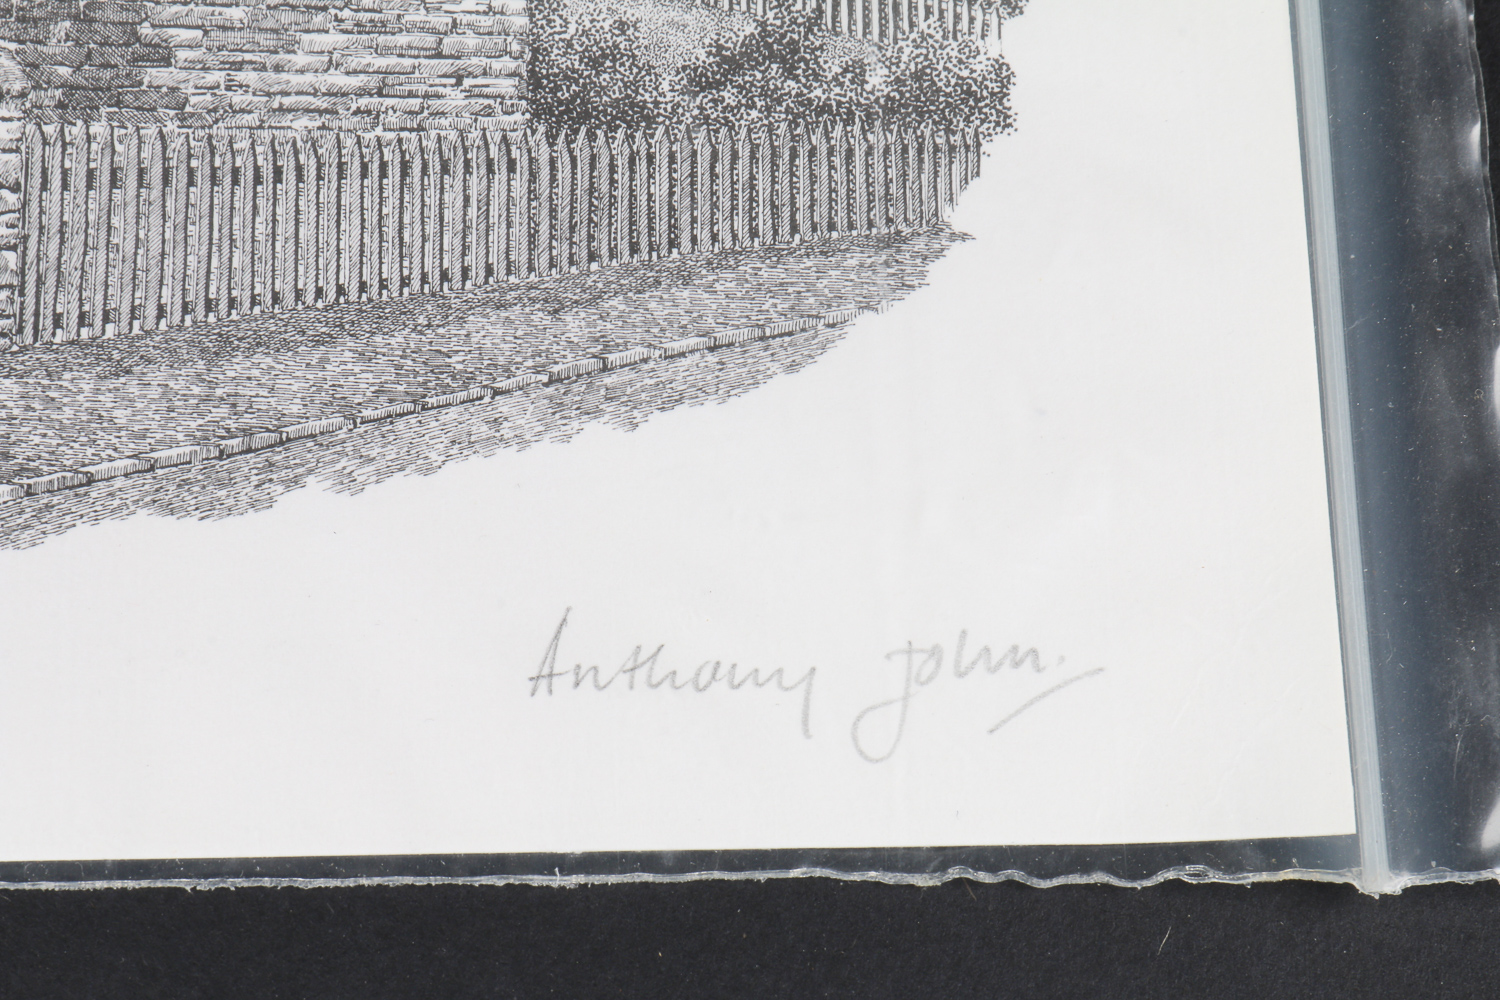 Anthony John.